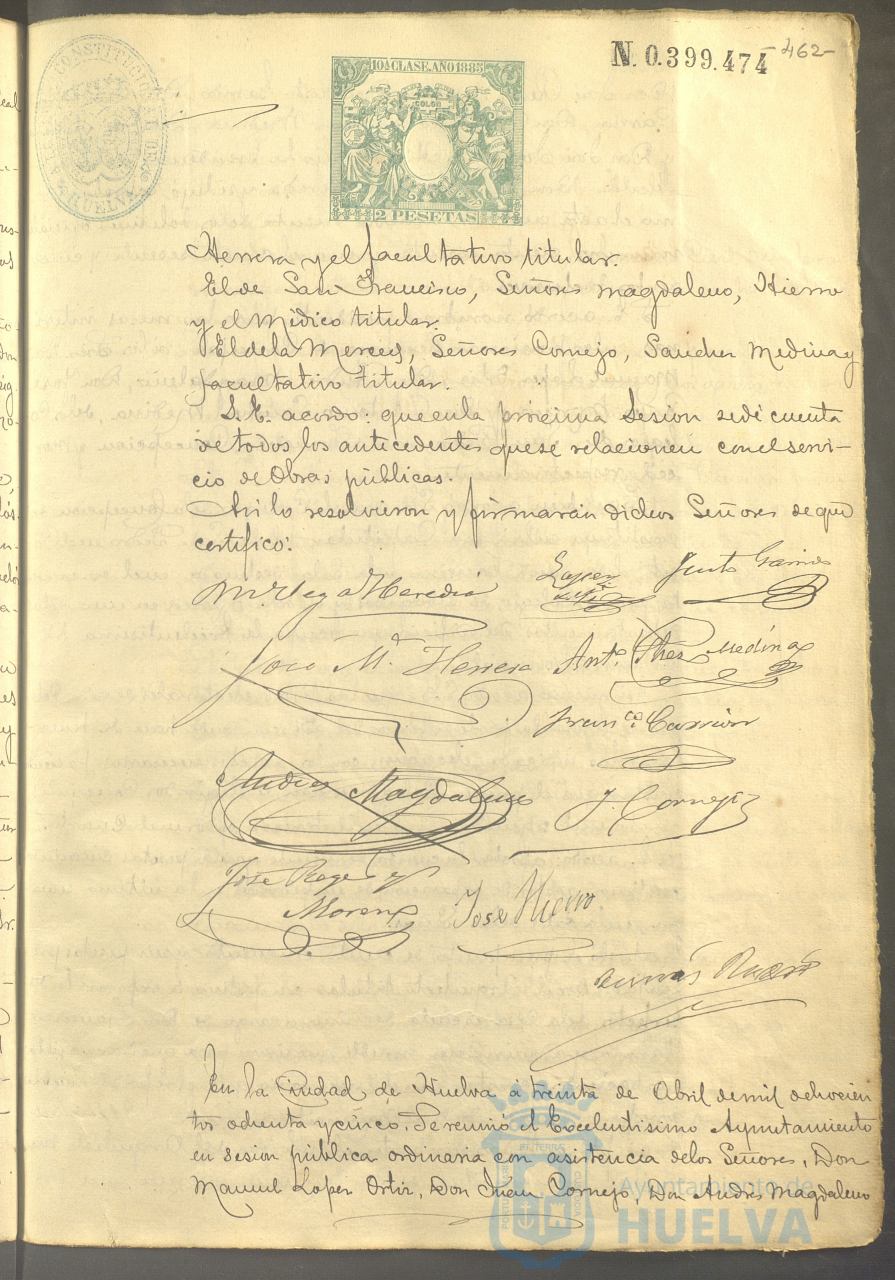 N. 0.399.474
462-
10ª CLASE. AÑO 1885
COLON
2 PESETAS
HUELVA
Herrera y el facultativo titular.
El de San Francisco, Señores Magdaleno, Hierro
y el Médico titular.
El de la Merced, Señores Cornejo, Sanchez Medina y
facultativo titular.
S. E. acordó: que en la próxima Sesion se dé cuenta
de todos los antecedentes que se relacionen con el servi-
cio de Obras públicas.
Asi lo resolvieron y firmarán dichos Señores de que
certifico:
Vega Heredia
Lopez
Justo Garrido
Jose Mª Herrera
Antº Schez Medina
Francº Carrión
Andres Magdaleno
J. Cornejo
Jose Roge y
Moreno
Jose Hierro
En la Ciudad de Huelva á treinta de Abril de mil ochocien
tos ochenta y cinco, se reunió el Excelentisimo Ayuntamiento
en sesion pública ordinaria con asistencia de los Señores, Don
Manuel Lopez Ortiz, Don Juan Cornejo, Don Andres Magdaleno
Ayuntamiento de
HUELVA